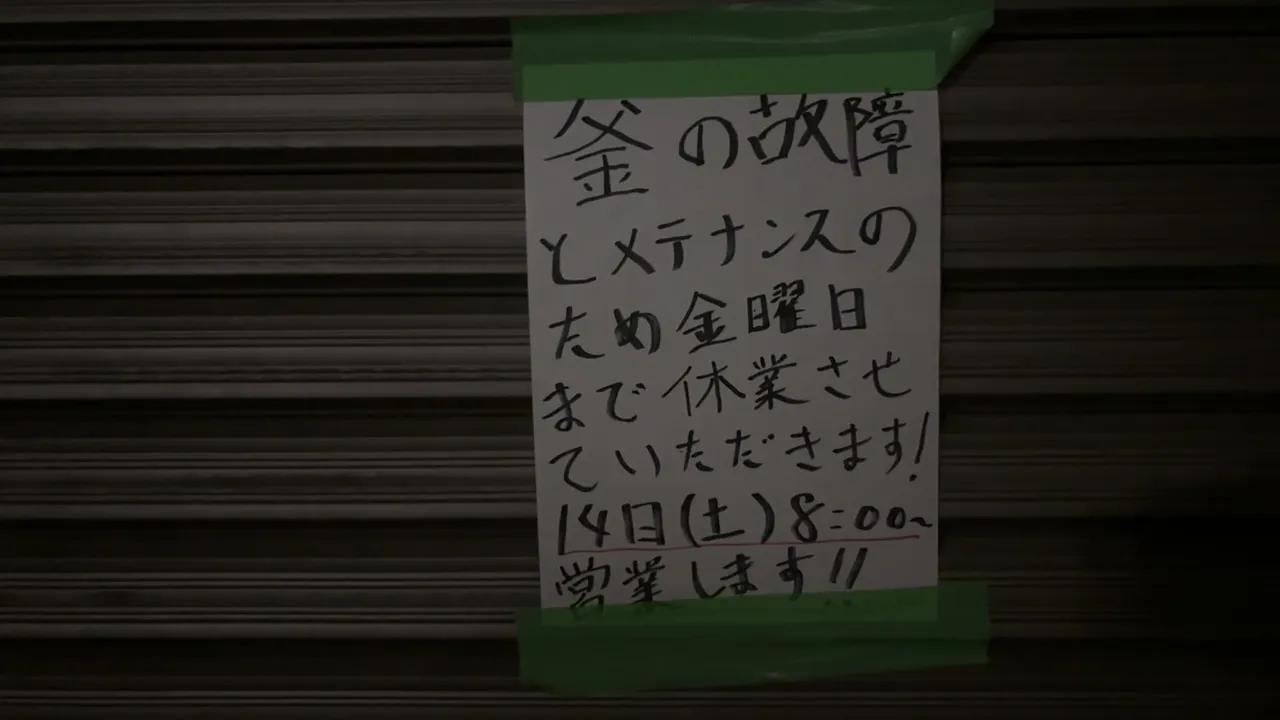 釜の故障
とメテナンスの
ため金曜日
まで休業させ
ていただきます!
14日(土)8:00~
営業します!!